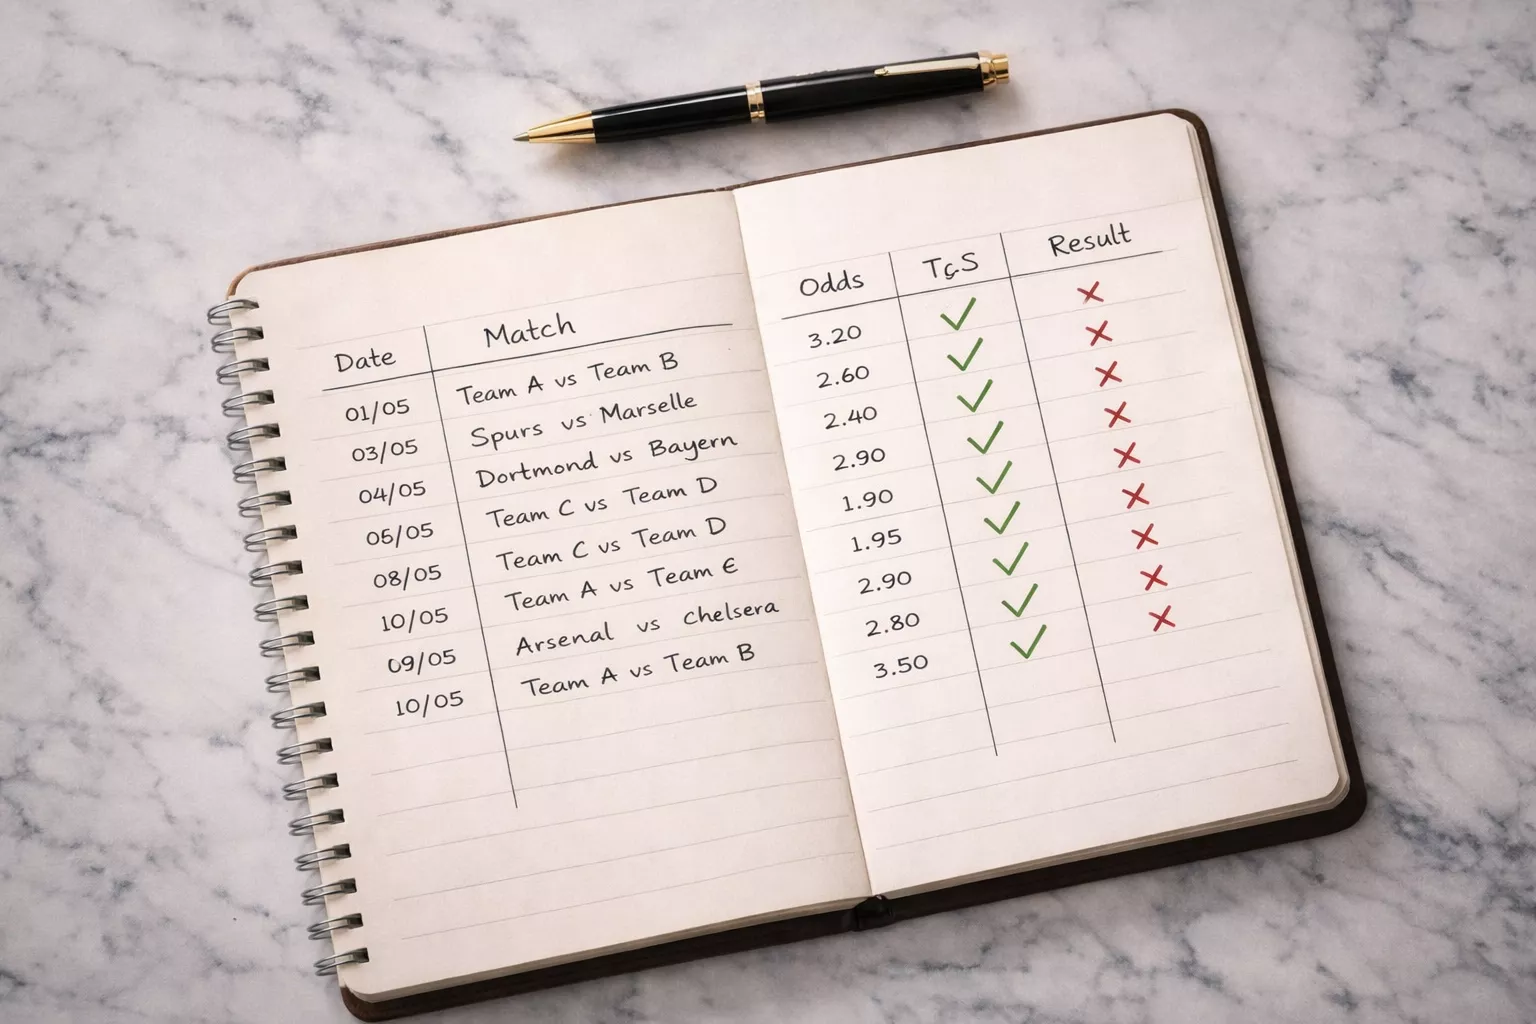 Date Match
01/05 Team A vs Team B
03/05 Spurs vs Marselle
04/05 Dortmond vs Bayern
05/05 Team C vs Team D
08/05 Team C vs Team D
10/05 Team A vs Team E
09/05 Arsenal vs Chelsera
10/05 Team A vs Team B
Odds T&S Result
3.20 ✓ ✗
2.60 ✓ ✗
2.40 ✓ ✗
2.90 ✓ ✗
1.90 ✓ ✗
1.95 ✓ ✗
2.90 ✓ ✗
2.80 ✓ ✗
3.50 ✓ ✗